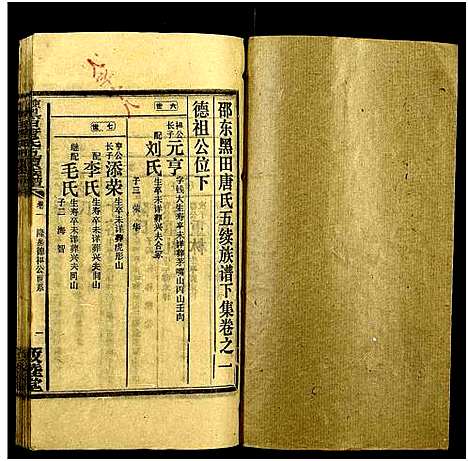 邵东黑田唐氏五续族谱下集卷之一
德祖公位下
六世
祖公长子 元亨 字钱大生寿卒未详葬茅嘴山丙山壬向
配 刘氏 生寿卒未详葬兴夫合冢
子二 荣 华
七世
亨公长子 添荣 生卒未详葬虎形山
配 李氏 生寿卒未详葬兴夫同山
继配 毛氏 生寿卒未详葬兴夫同山
子二 海 智
卷一
隆岳德祖公世系
一